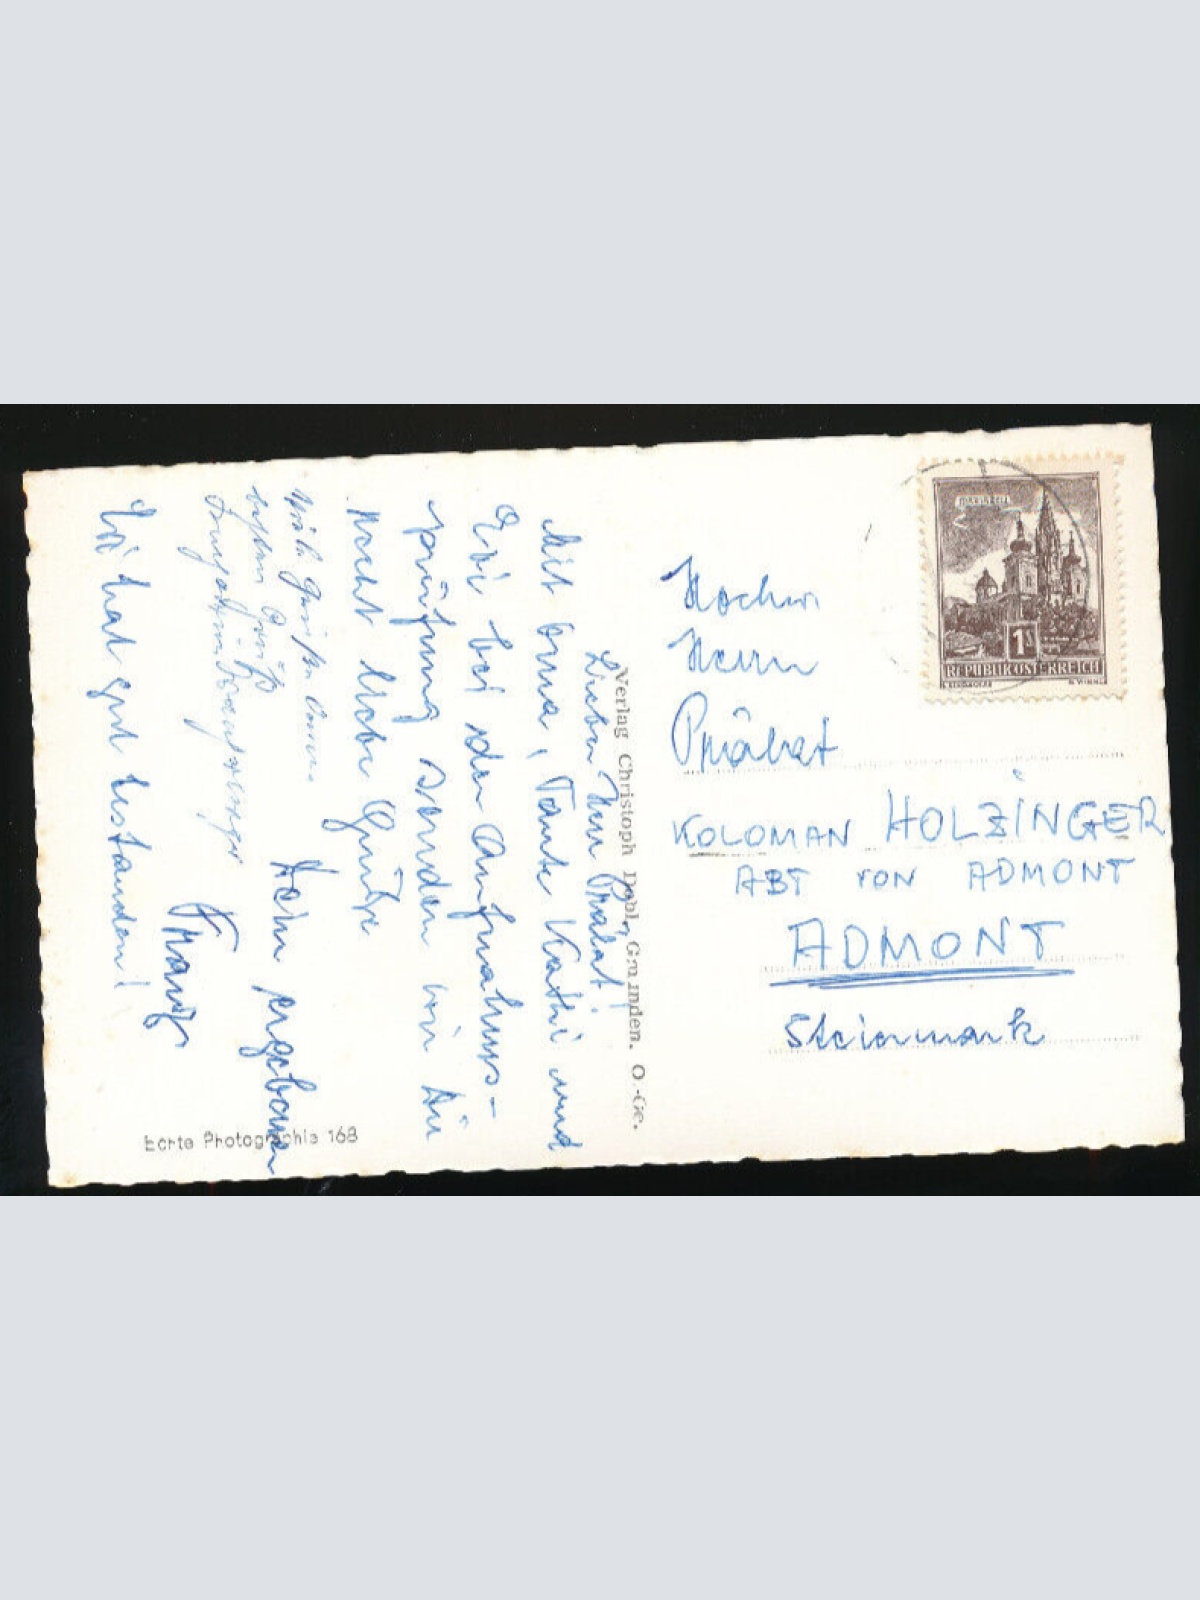 Lieber Herr Prälat!
Mit Oma, Tante Kathi und
Evi bei der Aufnahms-
prüfung senden wir Dir
recht liebe Grüße
Dein ergebener
Franz
Viele Grüße Oma
Evi hat gut bestanden!
Verlag Christoph Dobl, Gmunden. O.-Oe.
Echte Photographie 168
MARIAZELL
1S
REPUBLIK ÖSTERREICH
Hochw.
Herrn
Prälat
KOLOMAN HOLZINGER
ABT VON ADMONT
ADMONT
Steiermark